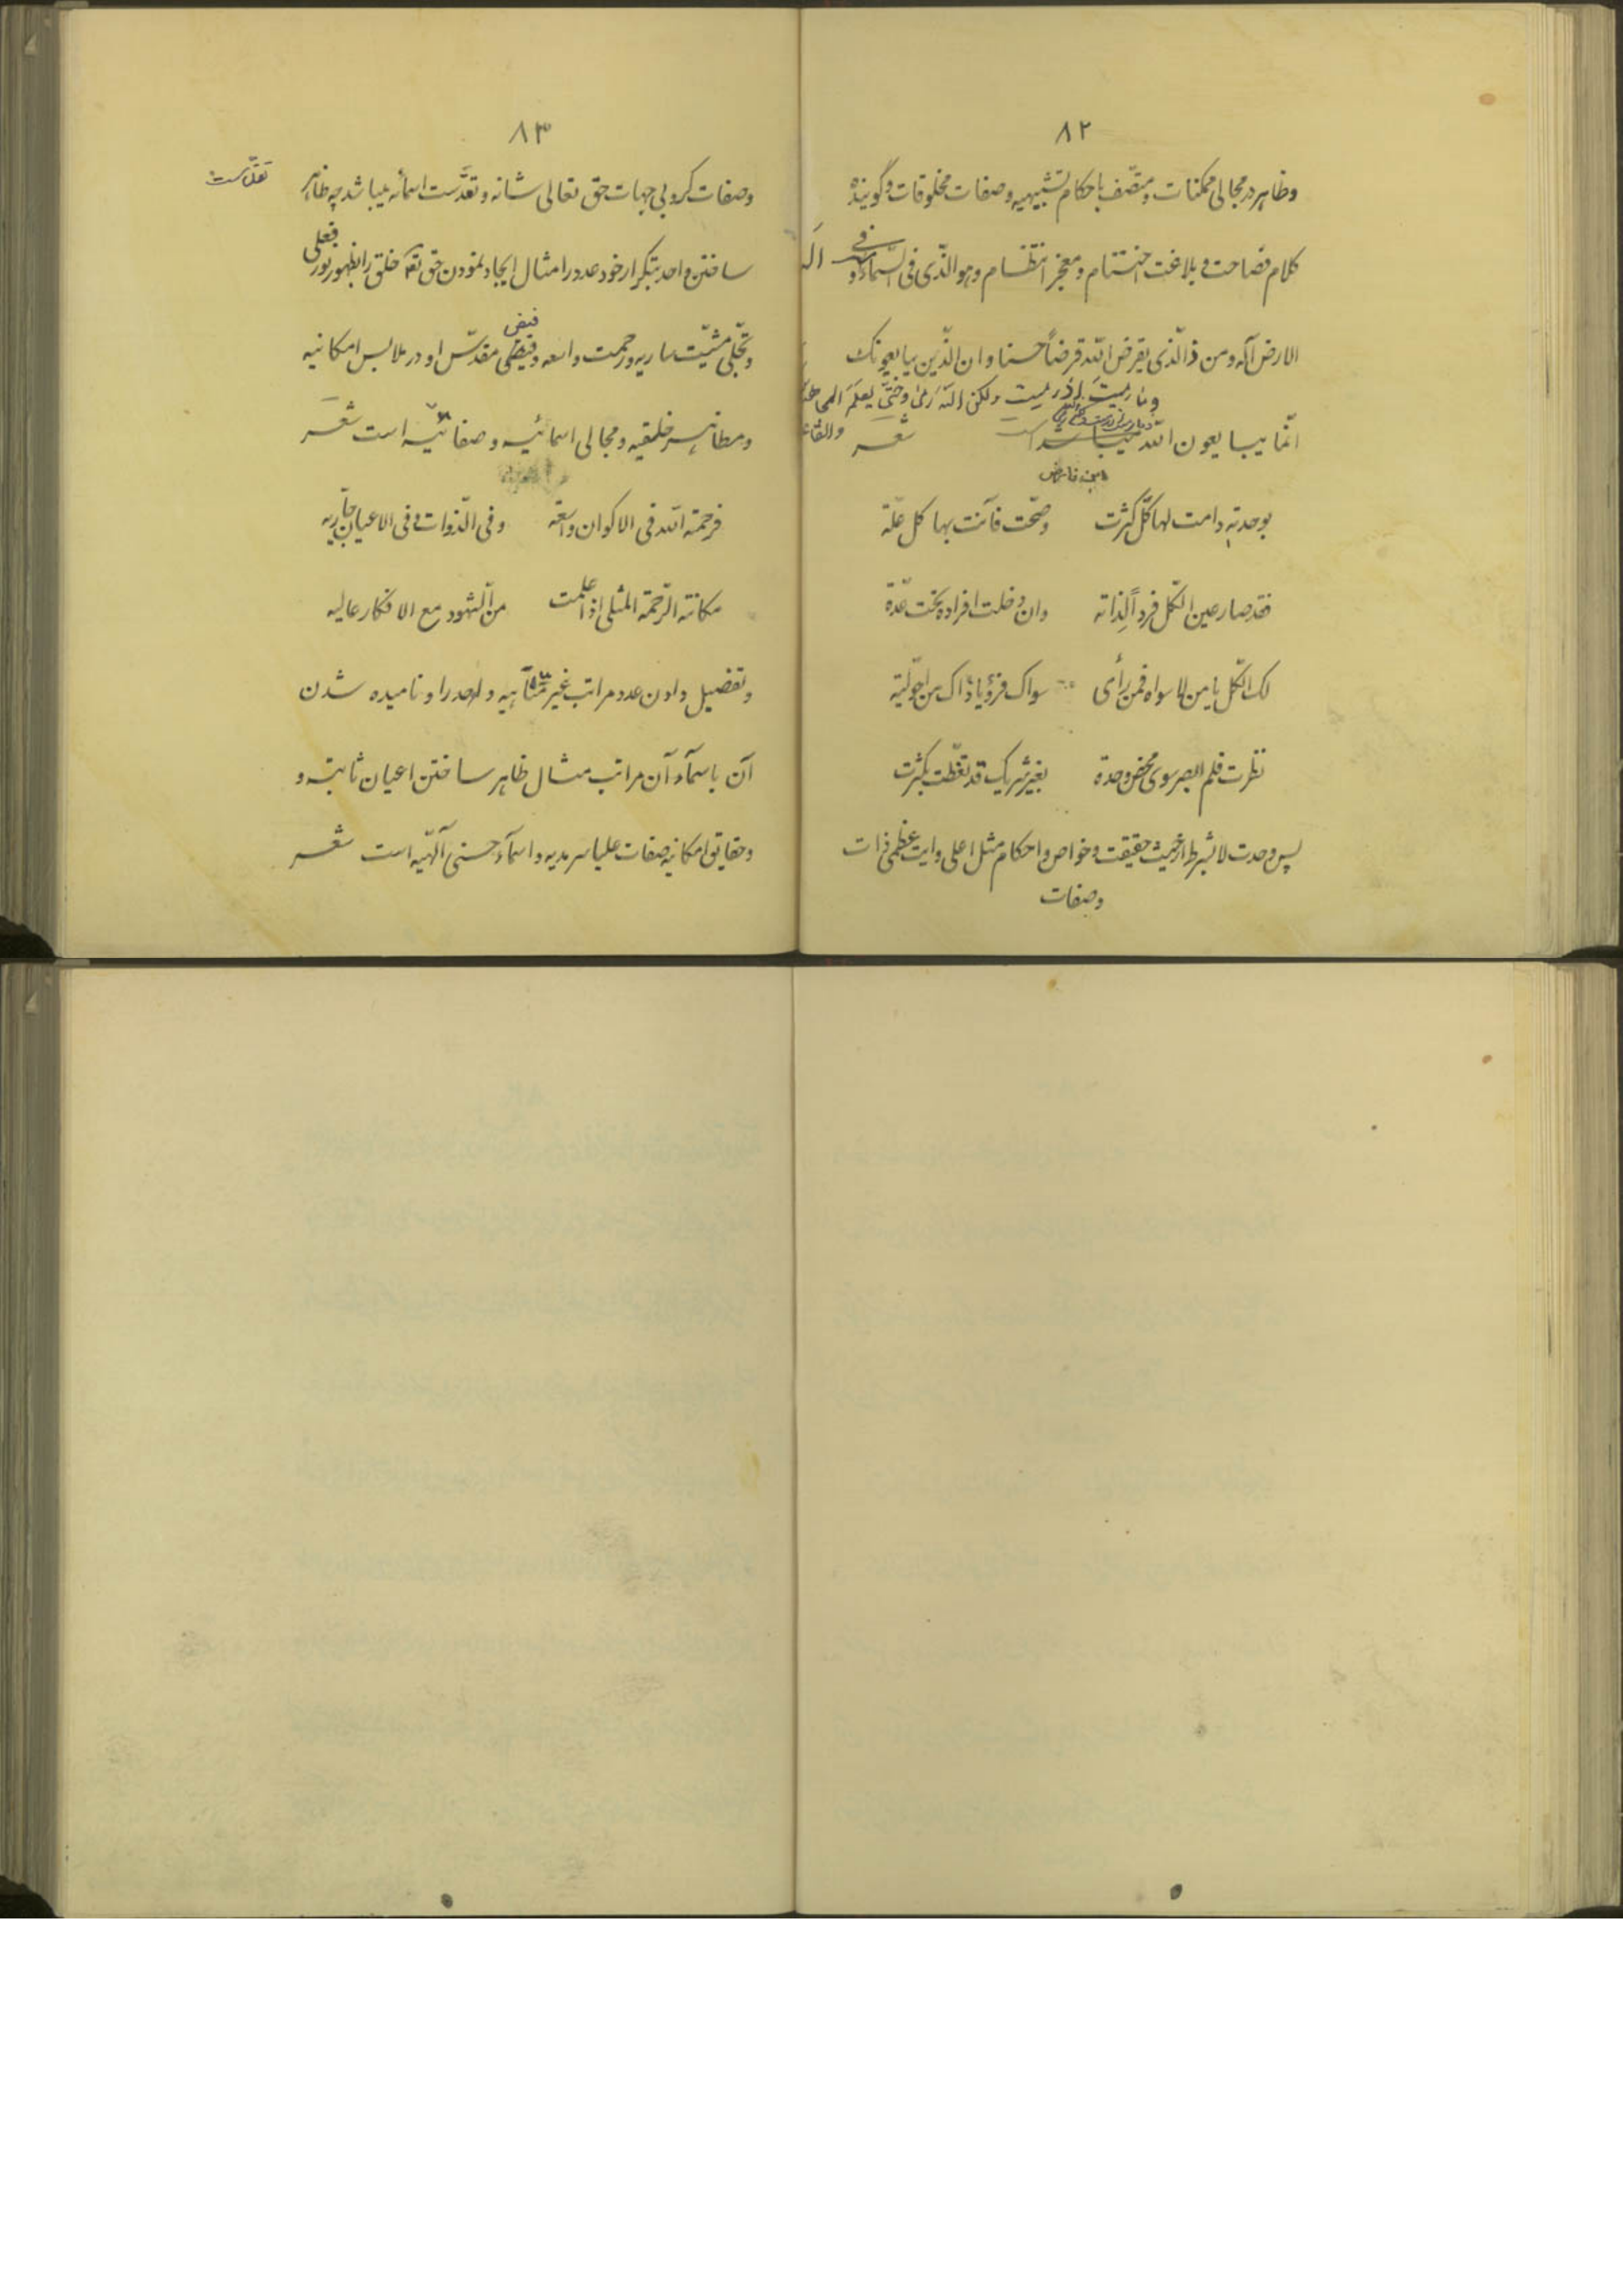 ٨٢
وظاهر در مجالی ممکنات و متصف باحکام تشبیهیه وصفات مخلوقات و گوینده
کلام فصاحت و بلاغت اختتام و معجز انتظام و هو الّذی فی السّمآء و فی
الارض آله و من ذا الّذی یقرض اللّه قرضاً حسنا و ان الّذین یبایعونک
وما رمیتَ اذ رمیت ولکن اللّه رمی و حتّی یعلَمَ
انّما یبایعون اللّه شعر
ابن فارض
بوحدته دامت لها کلّ کثرت وصحّت فآنت بها کل علّة
فقد صار عین الکّل فرداً لِذاته وان دخلت افراده تحت عدّة
لک الکّل یا من لا سواه فمن رأی سواک فرؤیا ذاک من احولیّة
نظرت فلم ابصر سوی محض وحدة بغیر شریک قد تغطّت بکثرت
پس وحدت لا بشرط از حیث حقیقت و خواص و احکام مثل اعلی و ایت عظمی ذات
وصفات
٨٣
وصفات کروبی جهات حق تعالی شانه و تقدّست اسمائه میباشد چه ظاهر
تقدّست
ساختن واحد بتکرار خود عدد را مثال ایجاد نمودن حق تع خلق را بظهور نور
فعلی
و تجّلی مشیّت ساریه و رحمت واسعه و فیض مقدّس او در ملابس امکانیه
و مظاهر خلقیه و مجالی اسمائیه و صفاتیّه است شعر
فرحمة اللّه فی الاکوان واسعة وفی الذّوات و فی الاعیان جاریه
مکانة الرّحمة المثلی اذا علمت من الّشهود مع الافکار عالیه
و تفصیل دادن عدد مراتب غیر متناهیه واحد را و نامیده شدن
آن باسمآء آن مراتب مثال ظاهر ساختن اعیان ثابته و
و حقایق امکانیه صفات علیا سرمدیه و اسمآء حسنی آلهّیه است شعر